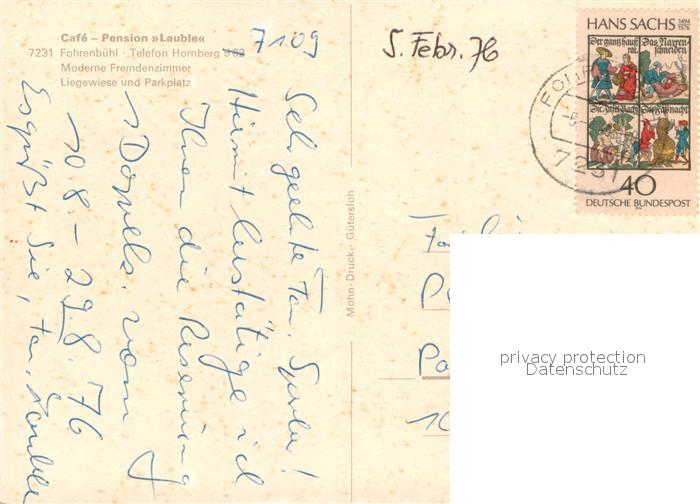 Café – Pension »Lauble«
7231 Fohrenbühl · Telefon Hornberg 8 62
7109
Moderne Fremdenzimmer
Liegewiese und Parkplatz
Sehr geehrte Fam.
Hiermit bestätige ich
Ihnen die Reservierung
1 Doppelz. vom
10.8. – 29.8.76
Es grüßt Sie, Fam. Lauble
Mohn-Druck, Gütersloh
5. Febr. 76
HANS SACHS 1494 1576
Der gantz hauß rat.
Das Narren schneiden.
40
DEUTSCHE BUNDESPOST
7231
privacy protection
Datenschutz